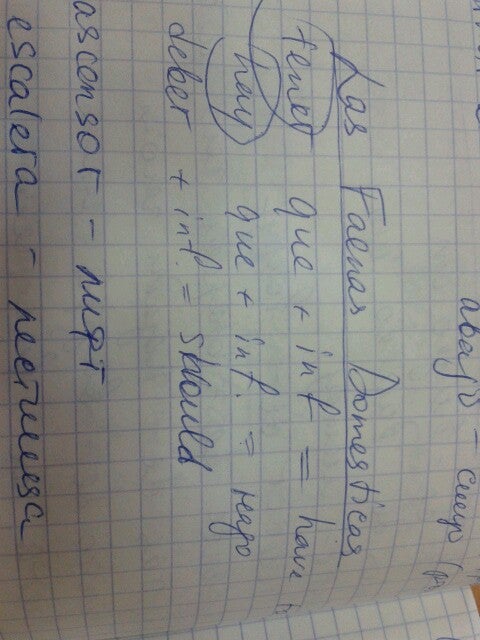 abajo -
Las Faenas Domesticas
tener que + inf = have
hay que + inf. = надо
deber + inf. = should
ascensor - лифт
escalera - лестница